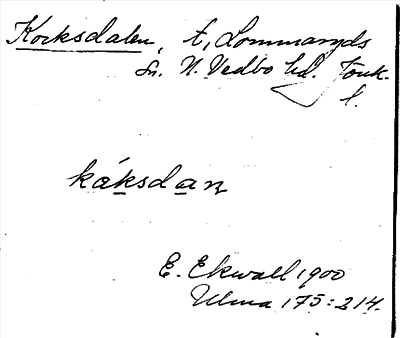 Kocksdalen, t, Lommaryds
sn. N. Vedbo hd. Jönk.
l.
kåksdan
E. Ekwall 1900
Ulma 175:214.